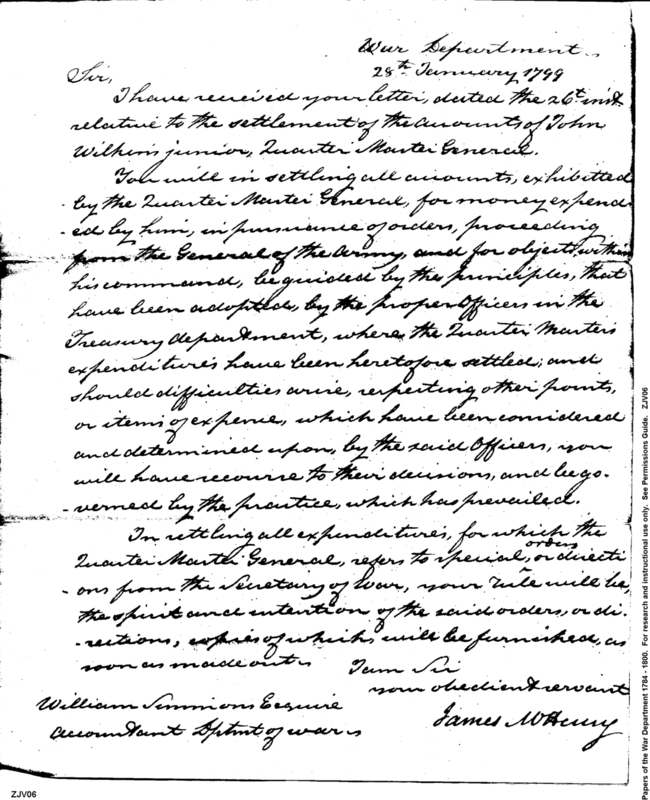 War Department
28th January 1799
Sir,
I have received your letter, dated the 26t. inst.
relative to the settlement of the accounts of John
Wilkins junior, Quarter Master General.
You will in settling all accounts, exhibitted
- by the Quarter Master General, for money expend
- ed by him, in pursuance of orders, proceeding
from the General of the Army, and for objects within
his command, be guided by the principles, that
have been adopted, by the proper Officers in the
Treasury department, where the Quarter Masters
expenditures have been heretofore settled; and
should difficulties arise, respecting other points,
or items of expense, which have been considered
and determined upon, by the said Officers, you
will have recourse to their decisions, and be go-
- verned by the practice, which has prevailed.
In settling all expenditures, for which the
Quarter Master General, refers to special, orders or directi
- ons from the Secretary of War, your rule will be,
the spirit and intention of the said orders, or di-
- rections, copies of which will be furnished, as
soon as made out.
I am Sir
your obedient servant
James McHenry
William Simmons Esquire
accountant Dptmt of war
ZJV06
Papers of the War Department 1784 - 1800. For research and instructional use only. See Permissions Guide. ZJV06